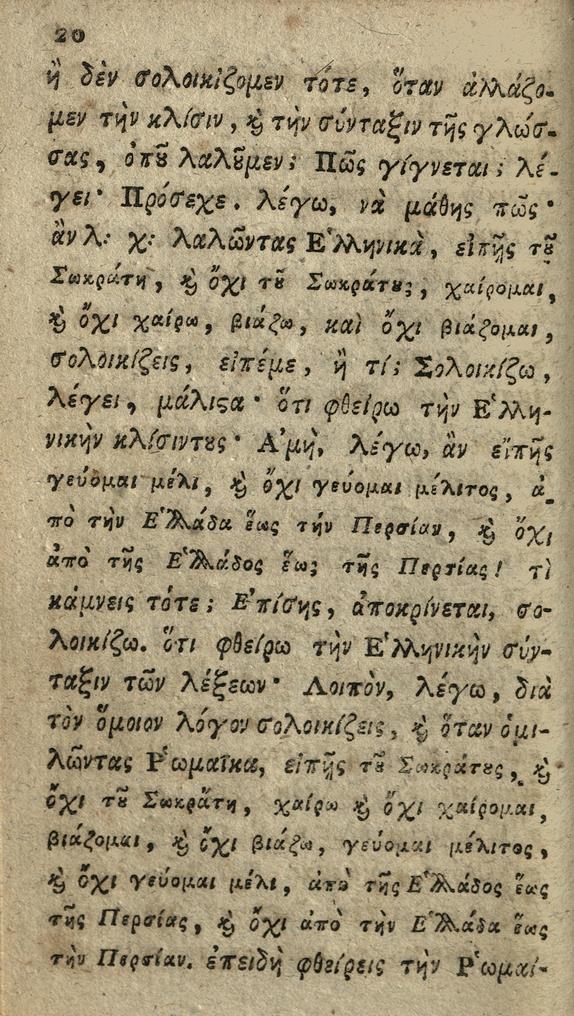 20
ἢ δὲν σολοικίζομεν τότε, ὅταν ἀλλάζο-
μεν τὴν κλίσιν, ϗ τὴν σύνταξιν τῆς γλώσ-
σας, ὁπȣ͂ λαλȣ͂μεν; Πῶς γίγνεται; λέ-
γει· Πρόσεχε. λέγω, νὰ μάθῃς πῶς·
ἂν λ: χ: λαλῶντας Ἑλληνικὰ, εἰπῇς τȣ͂
Σωκράτη, ϗ ὄχι τȣ͂ Σωκράτȣς, χαίρομαι,
ϗ ὄχι χαίρω, βιάζω, καὶ ὄχι βιάζομαι,
σολοικίζεις, εἰπέμε, ἢ τί; Σολοικίζω,
λέγει, μάλιϛα· ὅτι φθείρω τὴν Ἑλλη-
νικὴν κλίσιντȣς· Ἀμὴ, λέγω, ἂν εἴπῃς
γεύομαι μέλι, ϗ ὄχι γεύομαι μέλιτος, ἀ-
πὸ τὴν Ἑλλάδα ἕως τὴν Περσίαν, ϗ ὄχι
ἀπὸ τῆς Ἑλλάδος ἕως τῆς Περσίας! τὶ
κάμνεις τότε; Ἐπίσης, ἀποκρίνεται, σο-
λοικίζω. ὅτι φθείρω τὴν Ἑλληνικὴν σύν-
ταξιν τῶν λέξεων· Λοιπὸν, λέγω, διὰ
τὸν ὅμοιον λόγον σολοικίζεις, ϗ ὅταν ὁμι-
λῶντας Ῥωμαῖκα, εἰπῇς τȣ͂ Σωκράτȣς, ϗ
ὄχι τȣ͂ Σωκράτη, χαίρω ϗ ὄχι χαίρομαι,
βιάζομαι, ϗ ὄχι βιάζω, γεύομαι μέλιτος,
ϗ ὄχι γεύομαι μέλι, ἀπὸ τῆς Ἑλλάδος ἕως
τῆς Περσίας, ϗ ὄχι ἀπὸ τὴν Ἑλλάδα ἕως
τὴν Περσίαν. ἐπειδὴ φθείρεις τὴν Ῥωμαί-